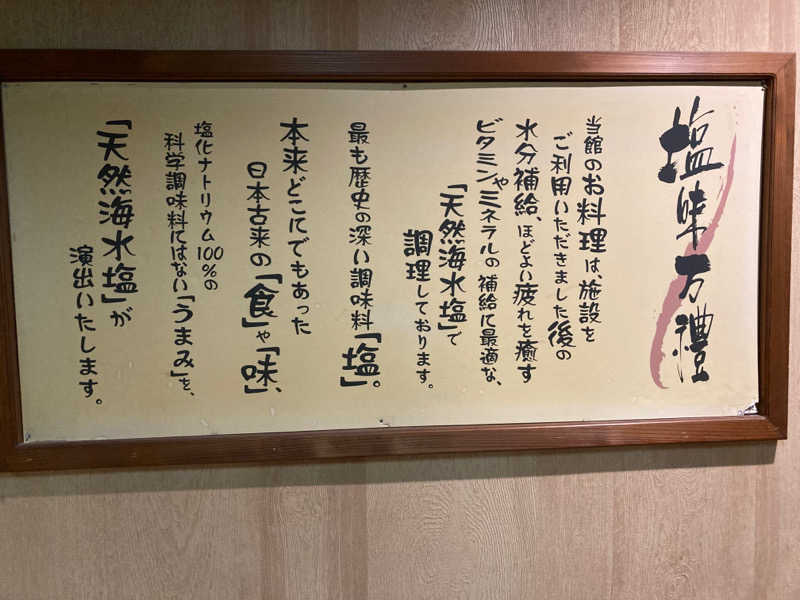 塩味万禮
当館のお料理は、施設を
ご利用いただきました後の
水分補給、ほどよい疲れを癒す
ビタミンやミネラルの補給に最適な、
「天然海水塩」で
調理しております。
最も歴史の深い調味料「塩」。
本来どこにでもあった
日本古来の「食」や「味」、
塩化ナトリウム100%の
科学調味料にはない「うまみ」を、
「天然海水塩」が
演出いたします。